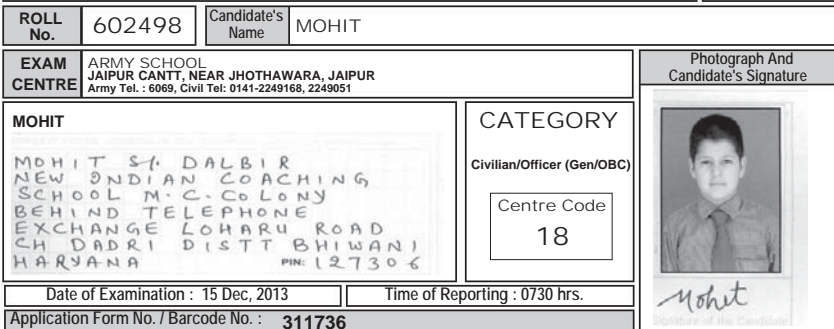 ROLL No. 602498 Candidate's Name MOHIT
EXAM CENTRE
ARMY SCHOOL
JAIPUR CANTT, NEAR JHOTHAWARA, JAIPUR
Army Tel. : 6069, Civil Tel: 0141-2249168, 2249051
Photograph And
Candidate's Signature
MOHIT
MOHIT S/. DALBIR
NEW INDIAN COACHING
SCHOOL M.C. COLONY
BEHIND TELEPHONE
EXCHANGE LOHARU ROAD
CH DADRI DISTT BHIWANI
HARYANA PIN: 127306
CATEGORY
Civilian/Officer (Gen/OBC)
Centre Code
18
Mohit
Signature of the Candidate
Date of Examination : 15 Dec, 2013 Time of Reporting : 0730 hrs.
Application Form No. / Barcode No. : 311736